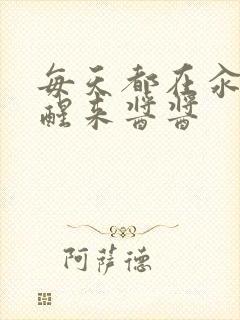 每天都在汆
醒来酱酱
阿萨德